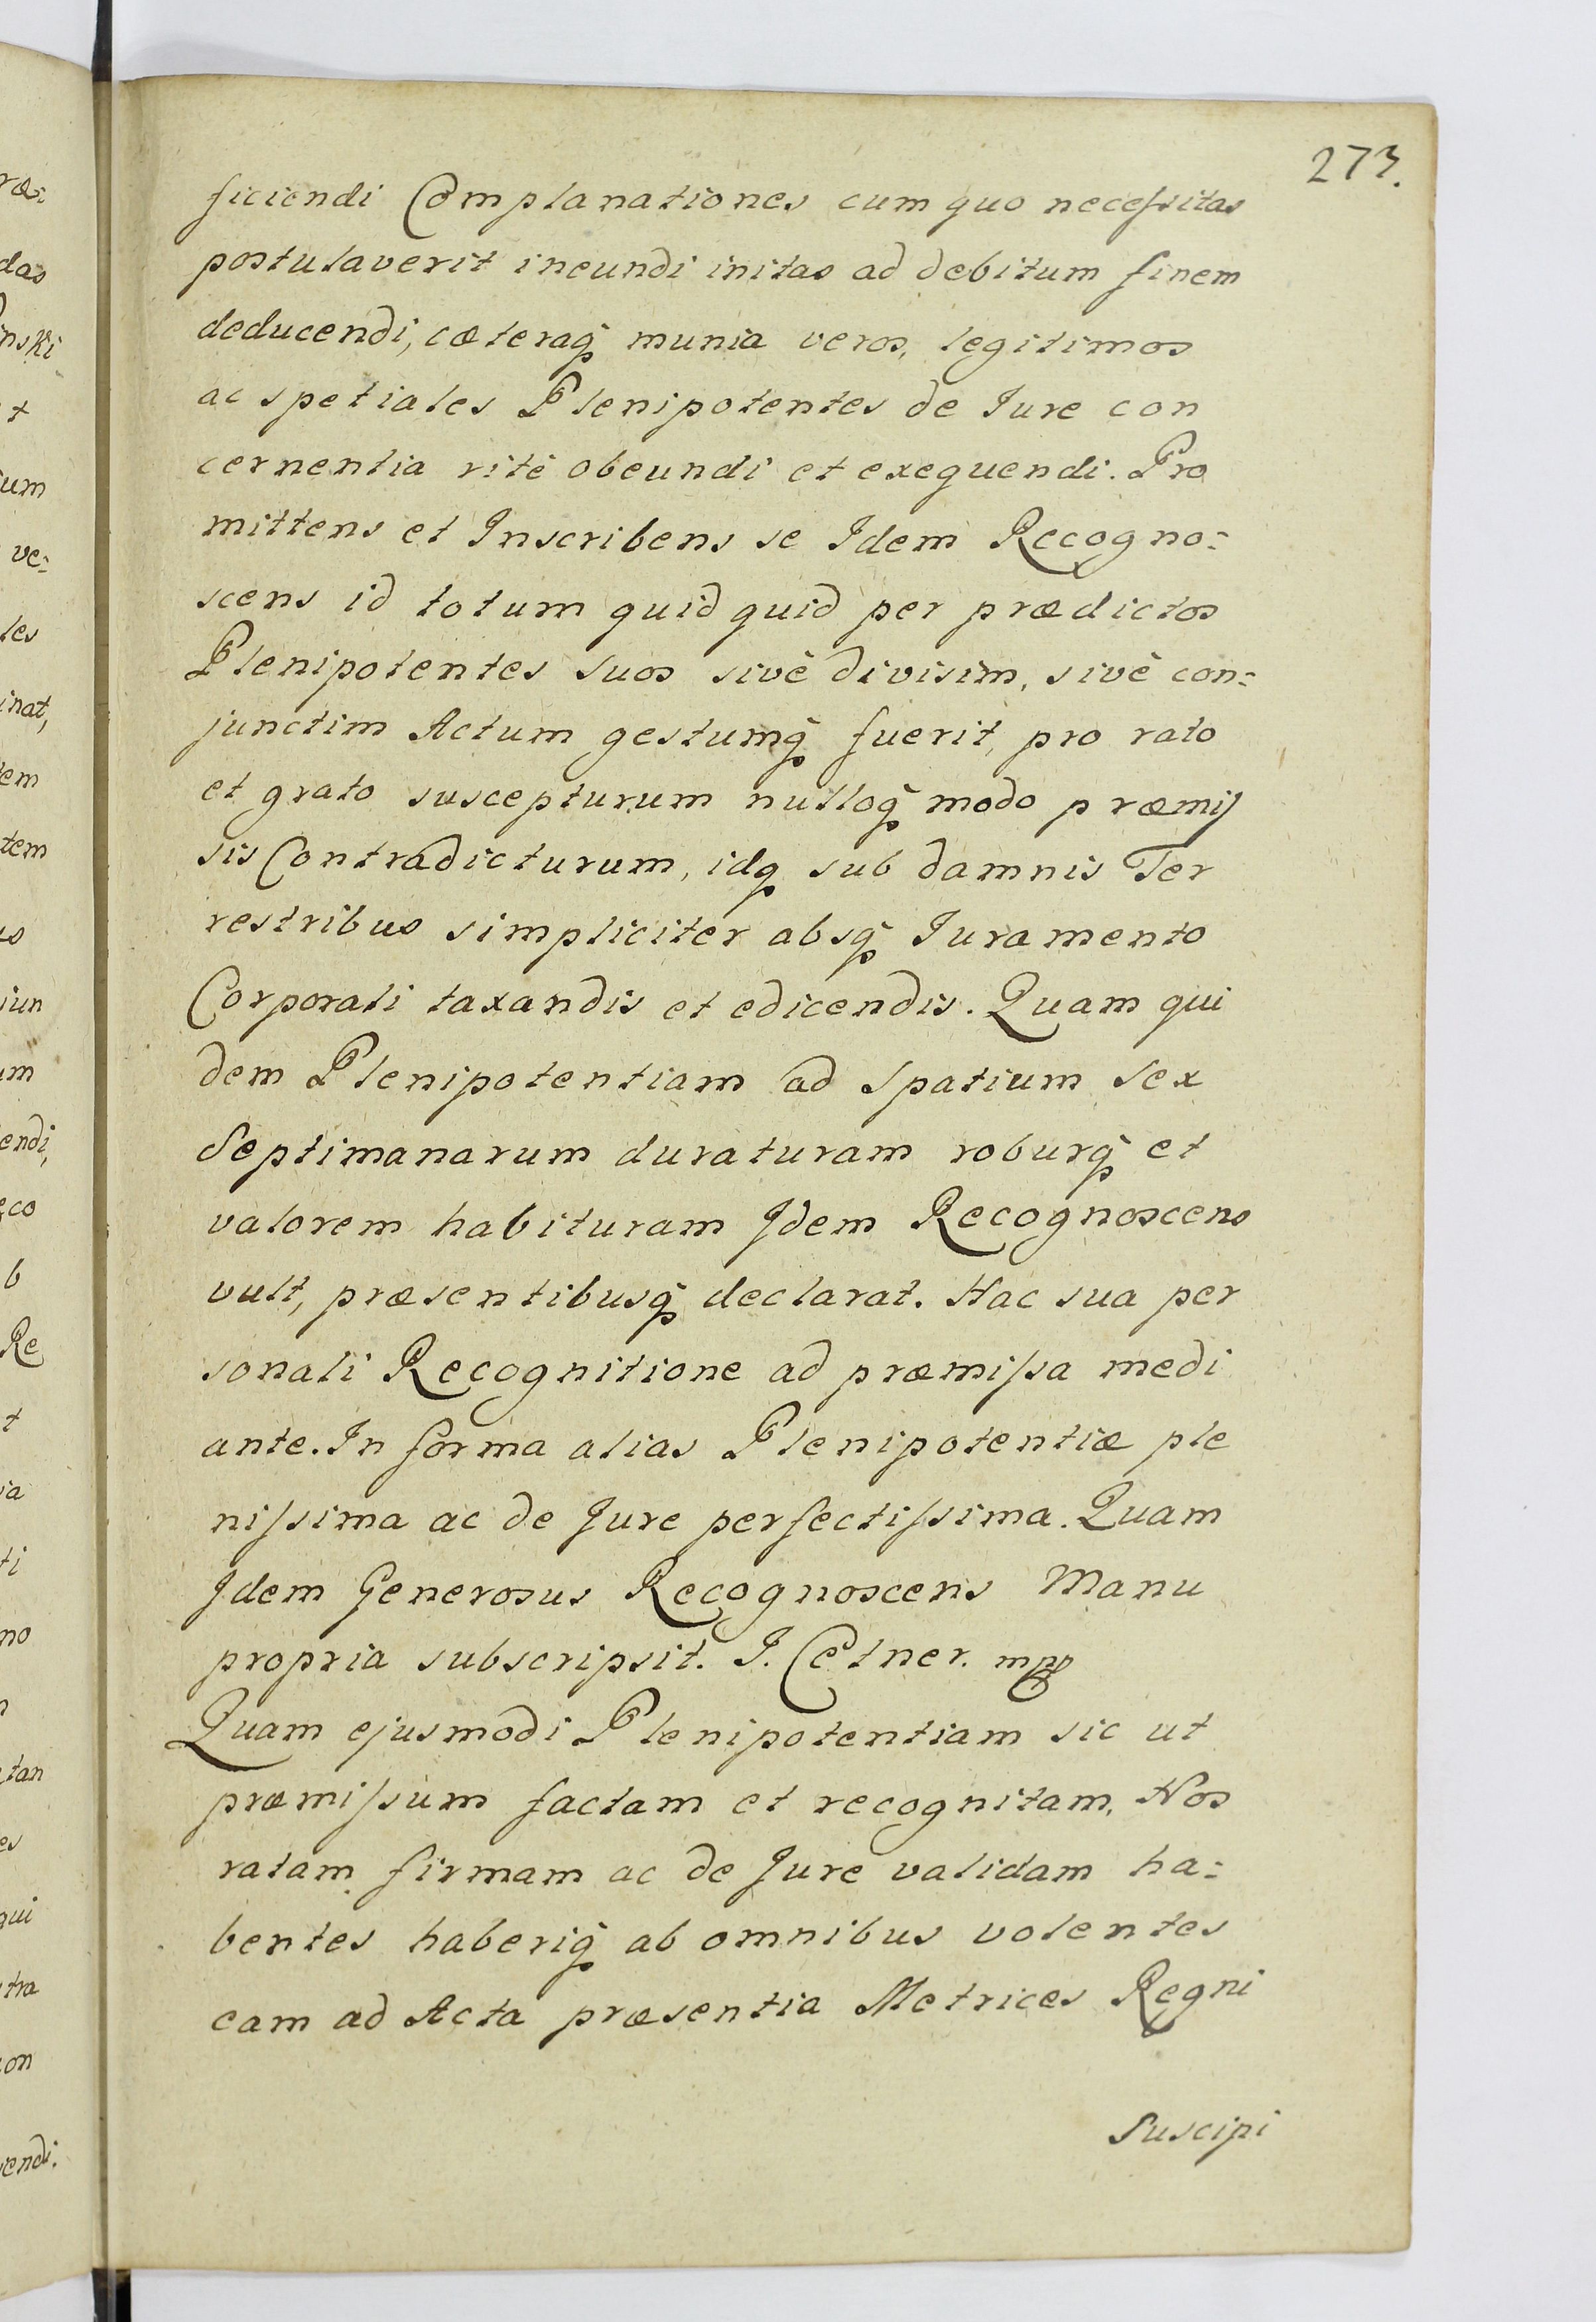 273.
ficiendi Complanationes cum quo necessitas
postulaverit ineundi initas ad debitum finem
deducendi, cæteraq̃ munia veros, legitimos
ac spetiales Plenipotentes de Iure con
cernentia ritè obeundi et exequendi. Pro
mittens et Inscribens se Idem Recogno=
scens id totum quid quid per prædictos
Plenipotentes suos sivè divisim, sivè con=
junctim Actum gestumq̃ fuerit, pro rato
et grato suscepturum nulloq̃ modo præmis
sis Contradicturum, idq̃ sub damnis Ter
restribus simpliciter absq̃ Iuramento
Corporali taxandis et edicendis. Quam qui
dem Plenipotentiam ad spatium sex
Septimanarum duraturam roburq̃ et
valorem habituram Idem Recognoscens
vult, præsentibusq̃ declarat. Hac sua per
sonali Recognitione ad præmissa medi
ante. In forma alias Plenipotentiæ ple
nissima ac de Jure perfectissima. Quam
Idem Generosus Recognoscens Manu
propria subscripsit. I. Cetner. mpp
Quam ejusmodi Plenipotentiam sic ut
præmissum factam et recognitam, Nos
ratam firmam ac de Jure validam ha=
bentes haberiq̃ ab omnibus volentes
eam ad Acta præsentia Metrices Regni
Suscipi